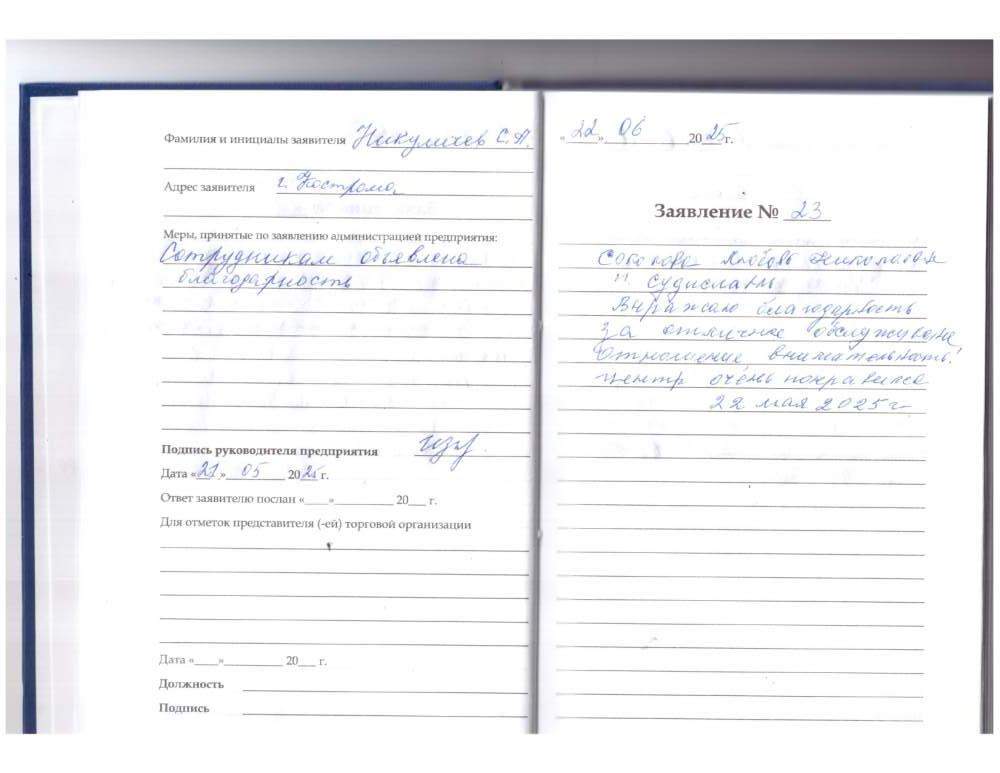 Фамилия и инициалы заявителя Никуличев С.А.
Адрес заявителя г. Кострома,
Меры, принятые по заявлению администрацией предприятия:
Сотрудникам объявлена
благодарность
Подпись руководителя предприятия
Дата « » 05 2025 г.
Ответ заявителю послан «____»__________ 20___ г.
Для отметок представителя (-ей) торговой организации
Дата «____»__________ 20___ г.
Должность
Подпись
« 22 » 06 2025г.
Заявление № 23
Соколова Любовь
Судиславль
Выражаю благодарность
за отличное
отношение внимательность!
центр очень понравился
22 мая 2025 г